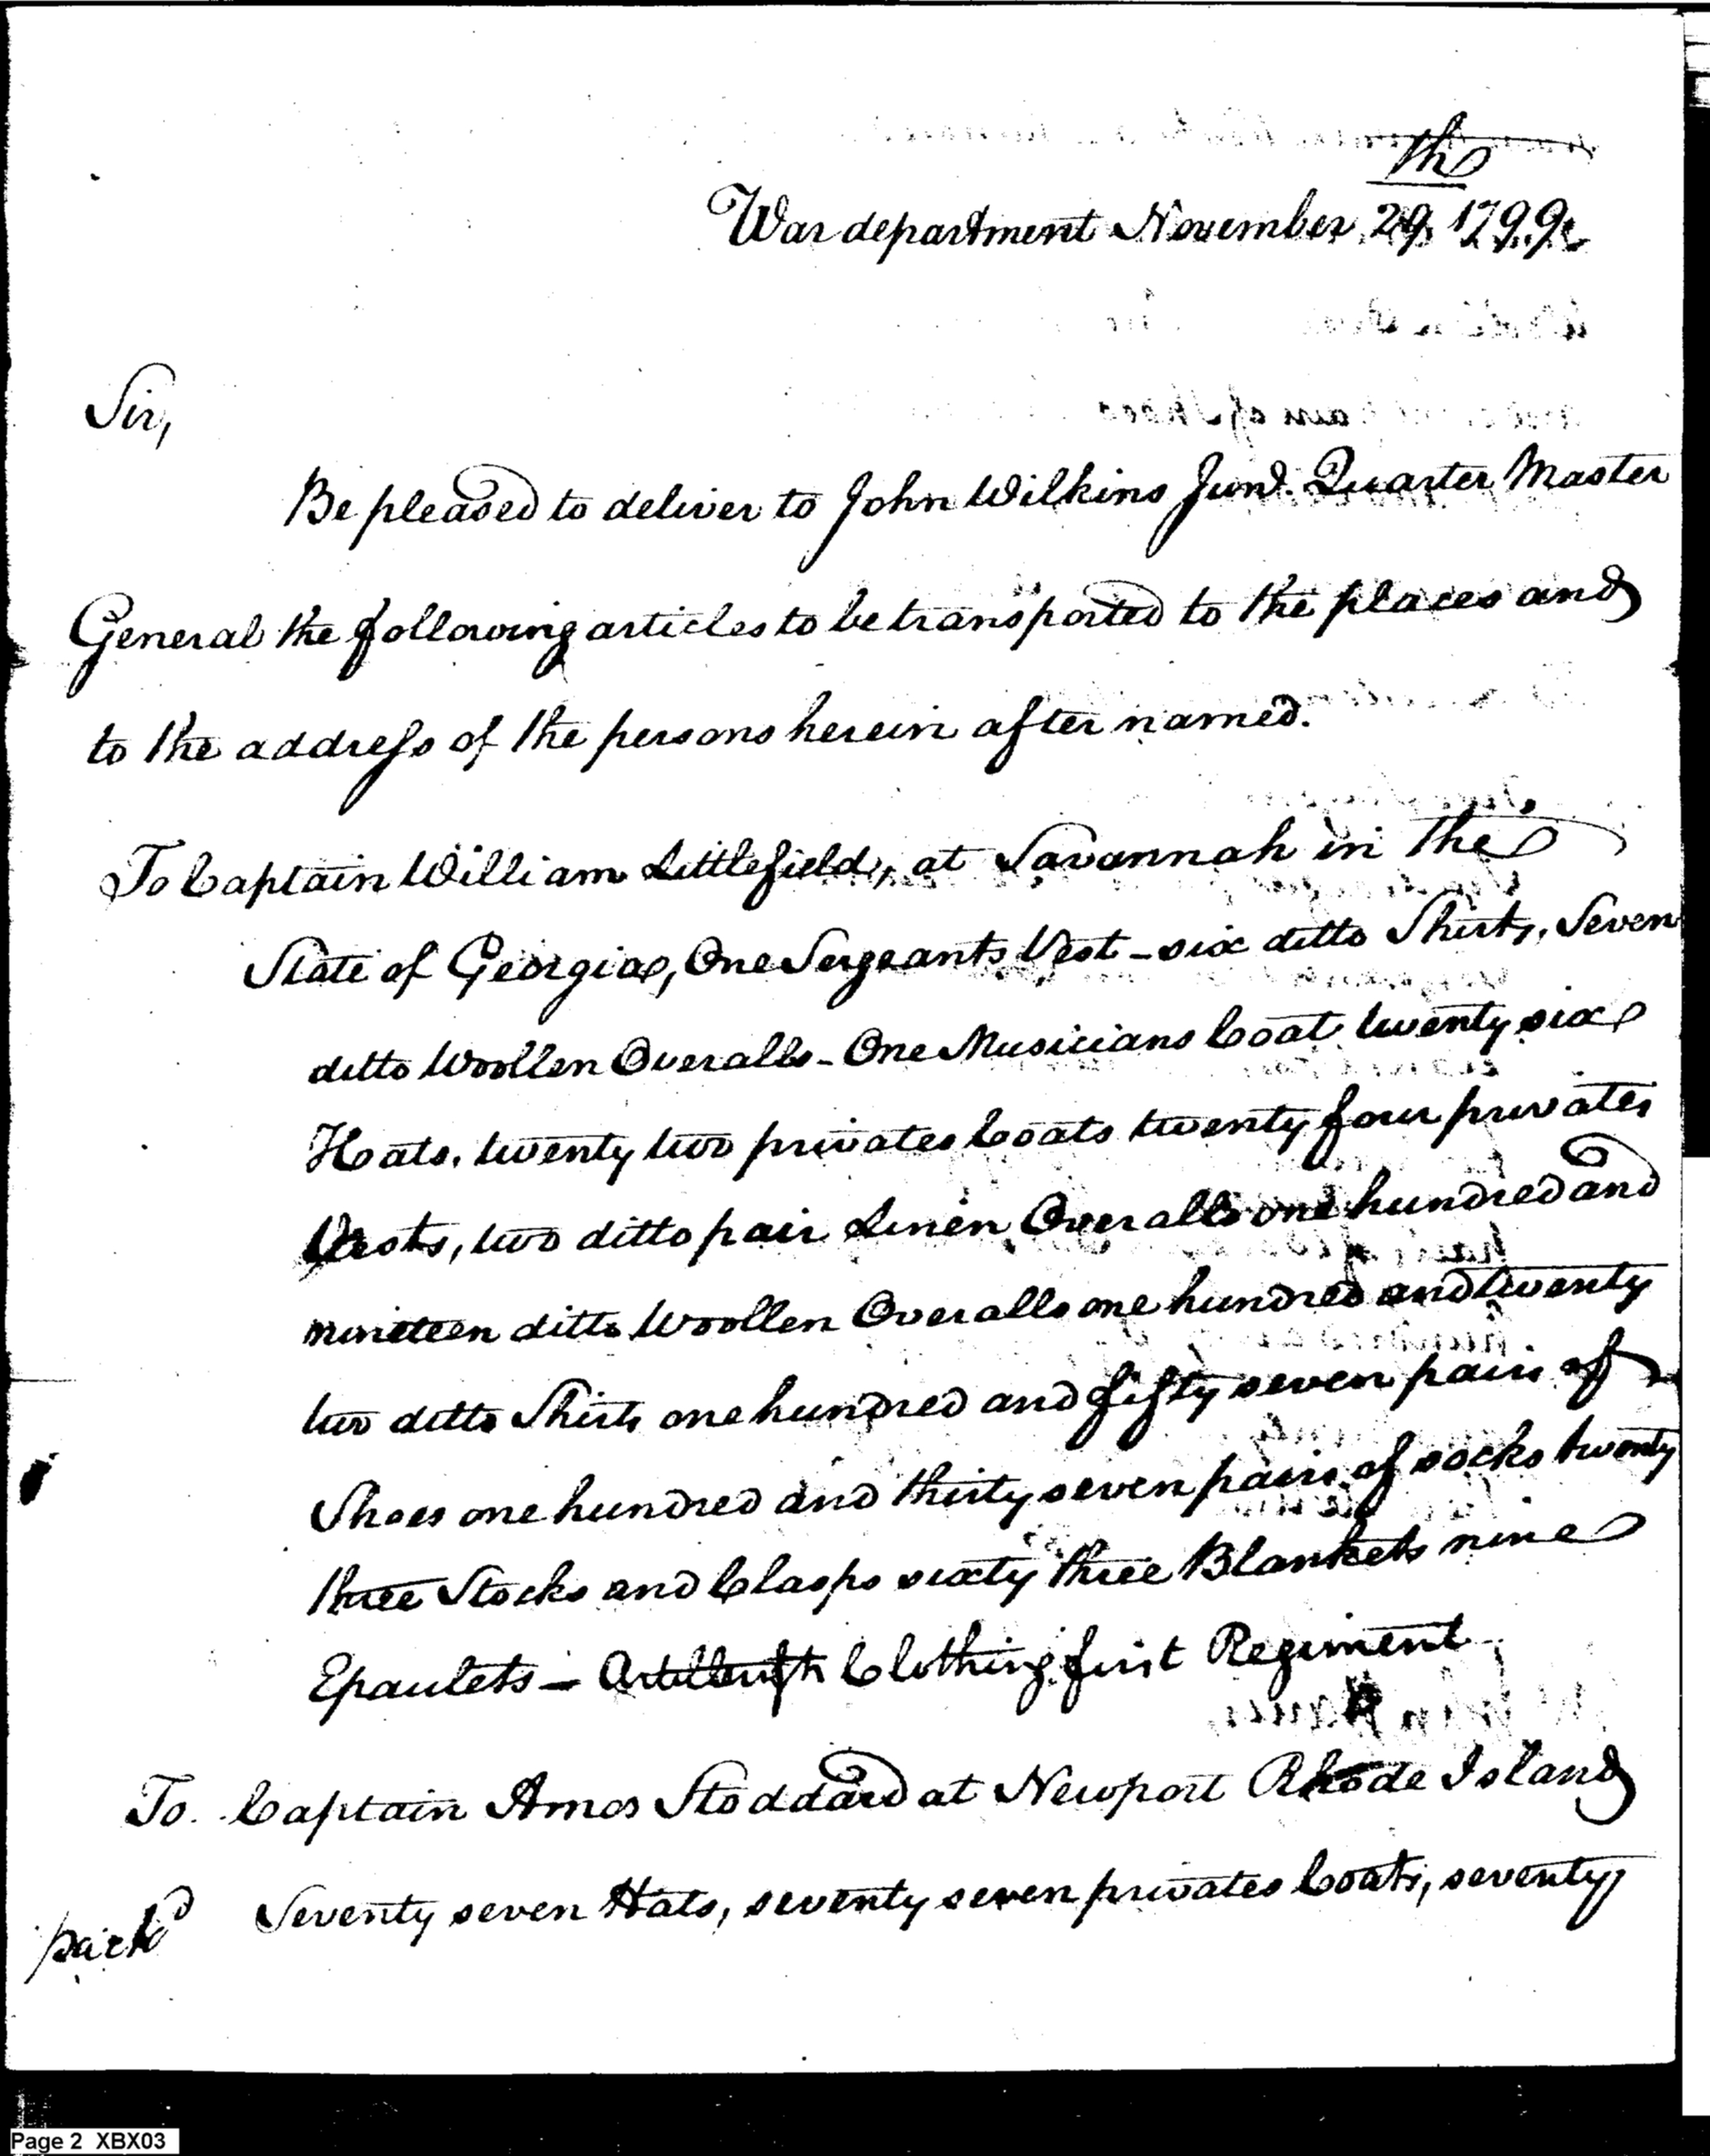 th
War department November 29 1799.
Sir,
Be pleased to deliver to John Wilkins Junr. Quarter Master
General the following articles to be transported to the places and
to the address of the persons herein after named.
To Captain William Littlefield, at Savannah in the
State of Georgia, One Sergeants Vest - six ditto Shirts, Seven
ditto Woollen Overalls - One Musicians Coat twenty six
Hats, twenty two privates Coats twenty four privates
Vests, two ditto pair Linen Overalls one hundred and
nineteen ditto Woollen Overalls one hundred and twenty
two ditto Shirts one hundred and fifty seven pairs of
Shoes one hundred and thirty seven pairs of socks twenty
three Stocks and Clasps sixty three Blankets nine
Epaulets - Clothing first Regiment
To Captain Amos Stoddard at Newport Rhode Island
pack'd Seventy seven Hats, seventy seven privates Coats, seventy
Page 2 XBX03